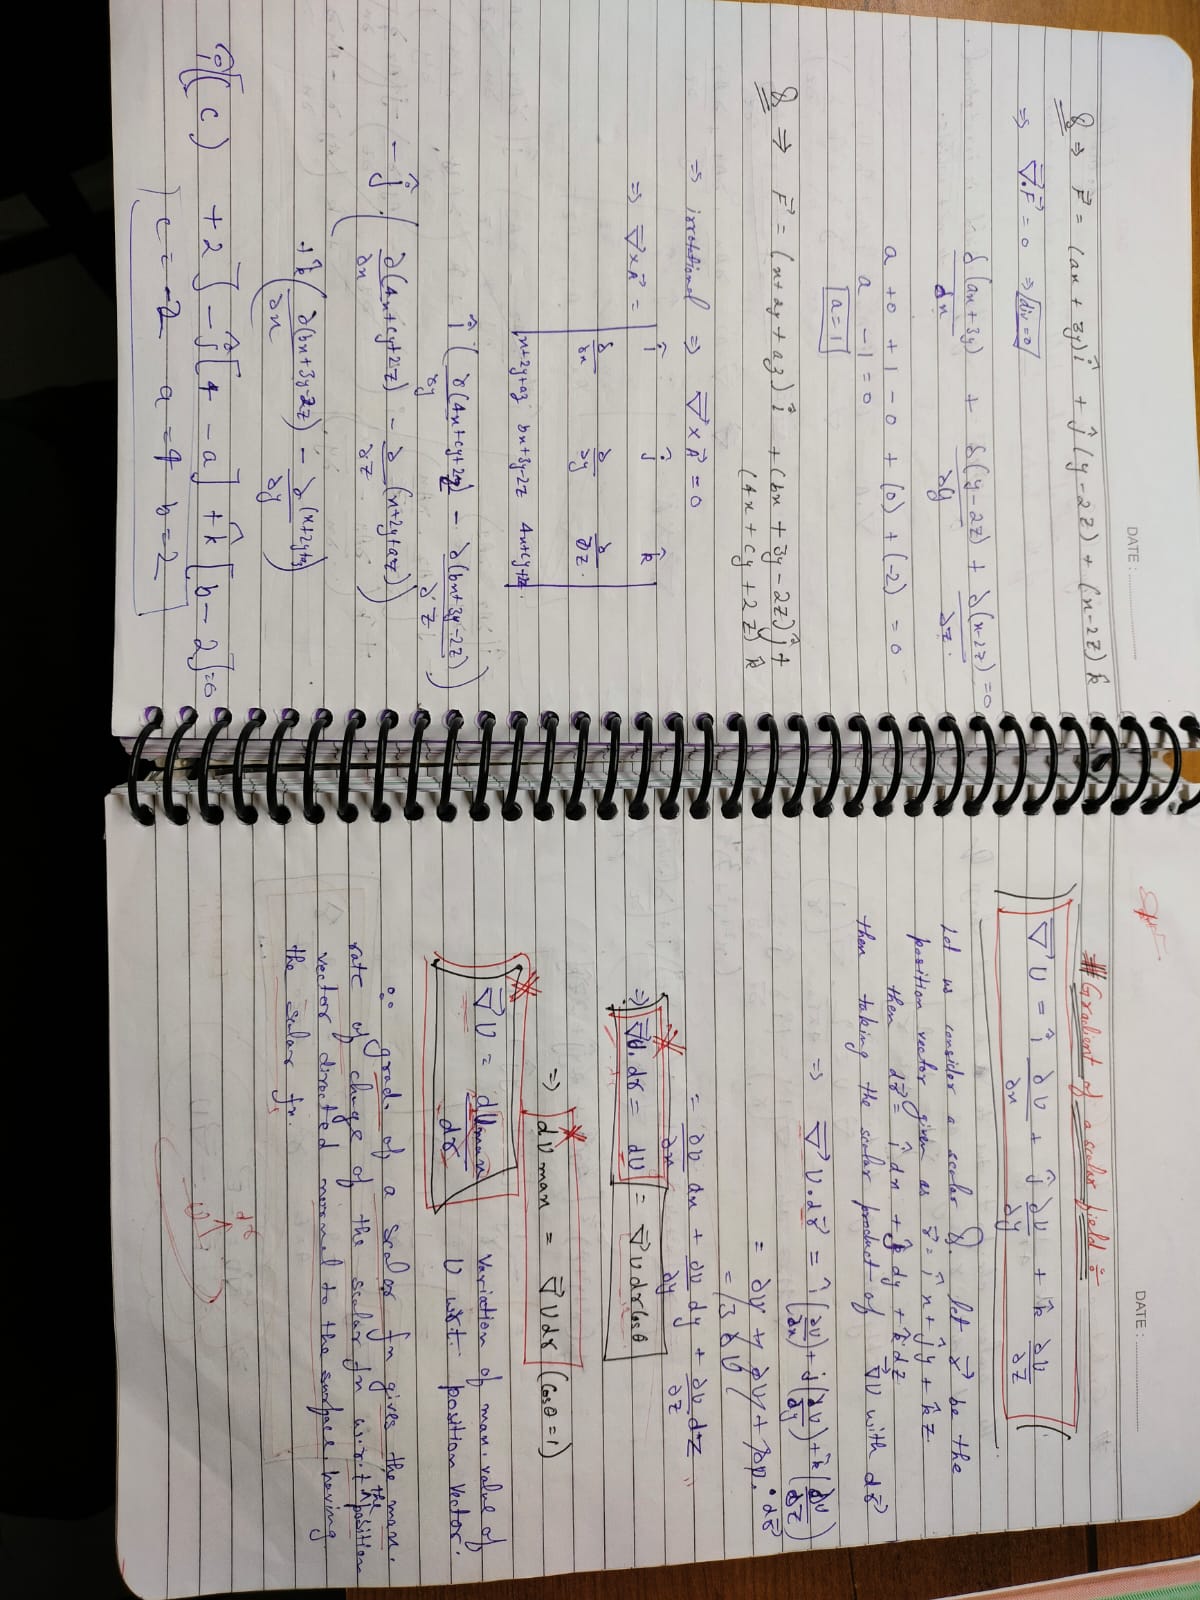 DATE :
Q ⇒ F⃗ = (ax + 3y) î + ĵ (y - 2z) + (x - 2z) k̂
⇒ ∇⃗.F⃗ = 0 ⇒ div = 0
∂(ax + 3y)/dx + ∂(y - 2z)/∂y + ∂(x - 2z)/∂z = 0
a + 0 + 1 - 0 + (0) + (-2) = 0
a - 1 = 0
a = 1
Q ⇒ F⃗ = (x + 2y + az) î + (bx + 3y - 2z) ĵ +
(4x + cy + 2z) k̂
⇒ irrotational ⇒ ∇⃗ × A⃗ = 0
⇒ ∇⃗ × A⃗ =
î ĵ k̂
∂/∂x ∂/∂y ∂/∂z
x+2y+az bx+3y-2z 4x+cy+2z
î (∂(4x+cy+2z)/∂y - ∂(bx+3y-2z)/∂z)
- ĵ (∂(4x+cy+2z)/∂x - ∂(x+2y+az)/∂z)
+ k̂ (∂(bx+3y-2z)/∂x - ∂(x+2y+az)/∂y)
î [c) + 2] - ĵ [4 - a] + k̂ [b - 2] = 0
c = -2 a = 4 b = 2
DATE :
# Gradient of a scalar field :
∇⃗U = î ∂U/∂x + ĵ ∂U/∂y + k̂ ∂U/∂z
Let us consider a scalar f. let r⃗ be the
position vector given as r⃗ = î x + ĵ y + k̂ z.
then dr⃗ = î dx + ĵ dy + k̂ dz
then taking the scalar product of ∇⃗U with dr⃗
⇒ ∇⃗U.dr⃗ = î (∂U/∂x) + ĵ (∂U/∂y) + k̂ (∂U/∂z) . dr⃗
= ∂U/∂x dx + ∂U/∂y dy + ∂U/∂z dz
⇒ ∇⃗U. dr = dU = ∇⃗U dr cosθ
⇒ dU max = ∇⃗U dr (cosθ = 1)
∇⃗U = dUmax/dr variation of max. value of
U w.r.t. position vector.
∴ grad. of a scalar fn gives the max.
rate of change of the scalar fn w.r.t the position
vector directed normal to the surface having
the scalar fn.
dr⃗